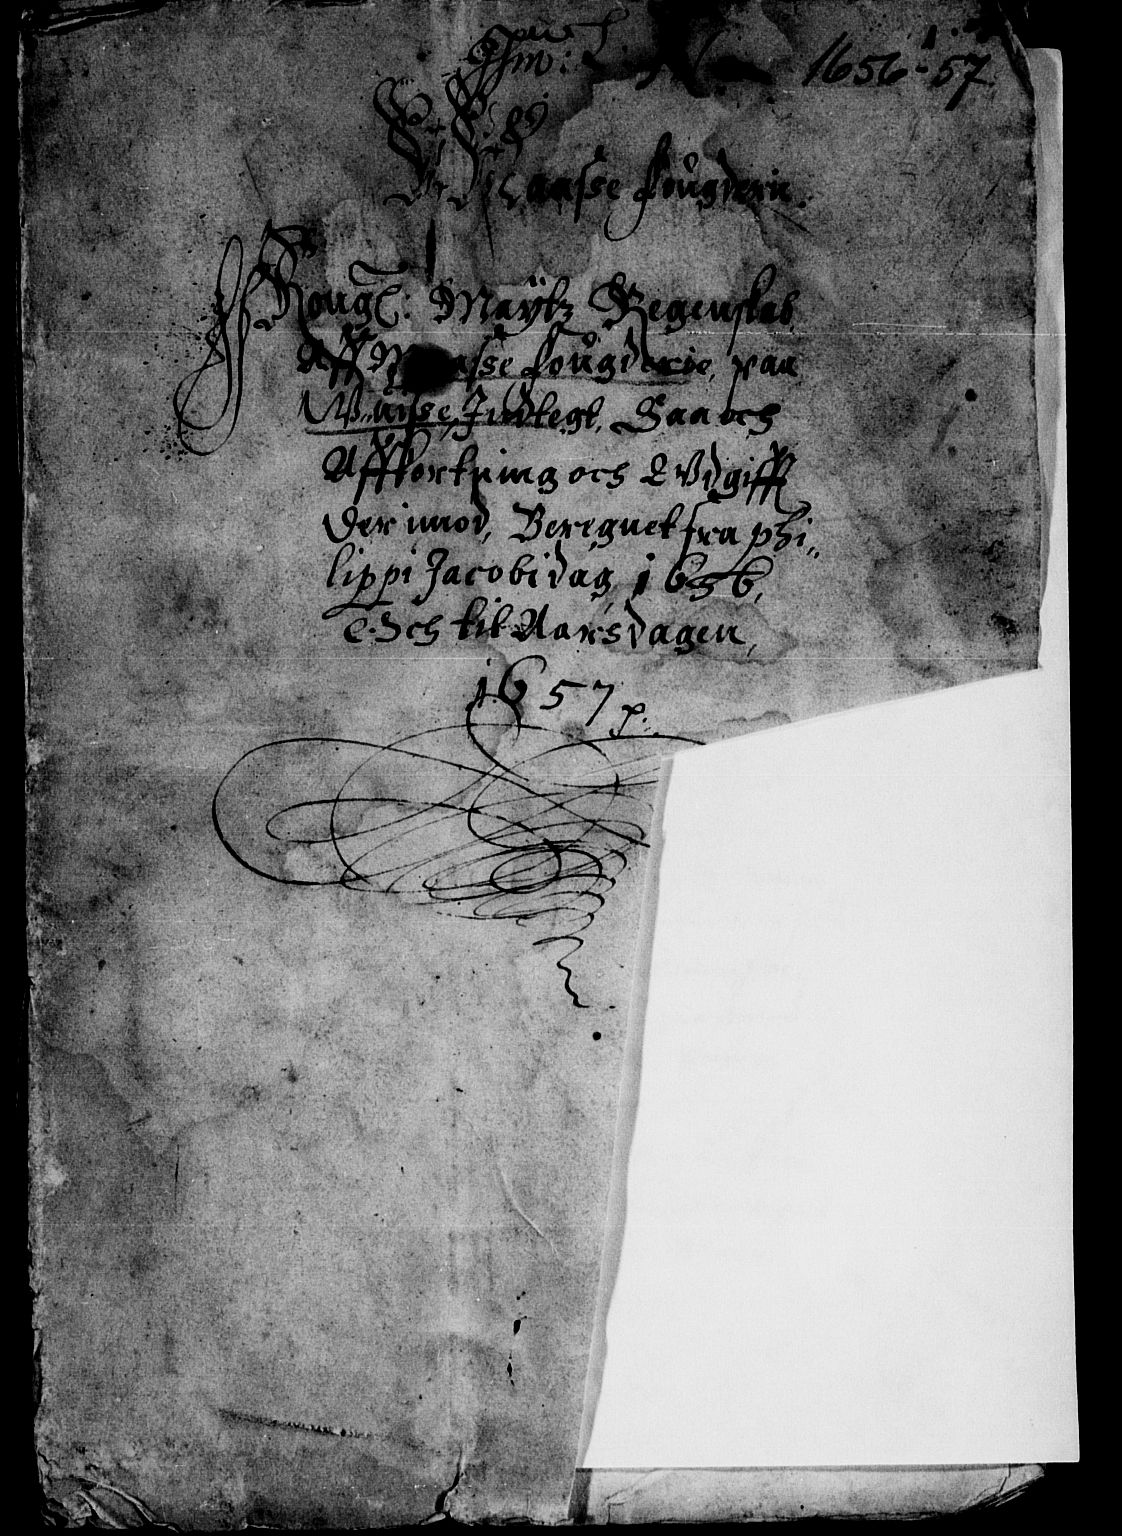 1656-57
Maasse fougderie.
Kongl: Maÿtz Regenskab
Aff Maasse fougderie, paa
Wiisse Indtegt, Saa och
Affkortning och Wdgifft
der imod, Beregnet fra phi„
lippi Jacobi dag 1656,
Och til Aarsdagen,
1657